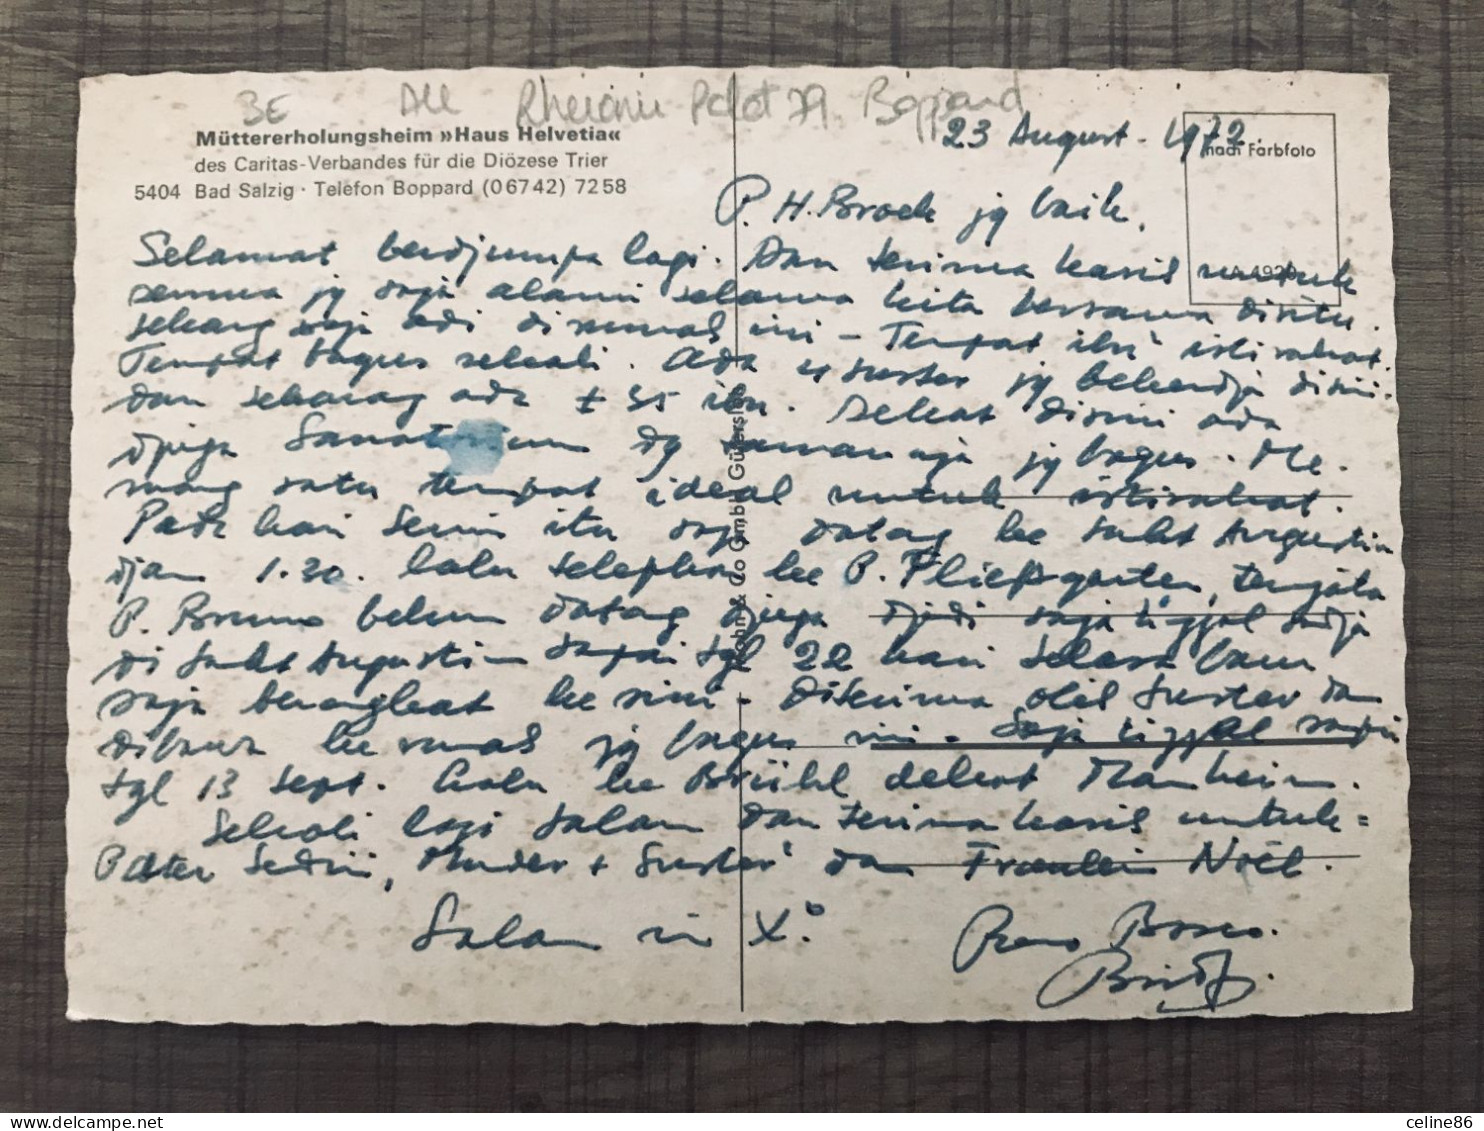 3E All Rhénanie Palat 79. Boppard
Müttererholungsheim »Haus Helvetia«
des Caritas-Verbandes für die Diözese Trier
5404 Bad Salzig · Telefon Boppard (06742) 7258
23 August - 1972.
nach Farbfoto
P. H. Broek jg baik,
Selamat berdjumpa lagi. Dan terima kasih untuk
semua jg saja alami selama kita bersama disitu.
sekarang saja di rumah ini - Tempat ibu² istirahat.
Tempat bagus sekali. Ada 4 suster jg bekerdja disini.
dan sekarang ada ± 35 ibu. Dekat disini ada
djuga Sanatorium dg tamannja jg bagus. Me-
mang satu tempat ideal untuk istirahat.
Pada hari Senin itu saja datang ke Sankt Augustin
djam 1.30. lalu telephon ke P. Fließgarten, ternjata
P. Bruno belum datang djuga djadi saja tinggal sadja
di Sankt Augustin sampai tgl 22 hari Selasa baru
saja berangkat ke sini - diterima oleh Suster dan
dibawa ke rumah jg bagus ini - Saja tinggal sampai
tgl 13 Sept. lalu ke Brühl dekat Manheim.
Sekali lagi salam dan terima kasih untuk =
Pater Sedin, Bruder + Suster² dan Fraulein Noël.
Salam in X°.
Bosco.
Rahn & Co GmbH Gütersloh